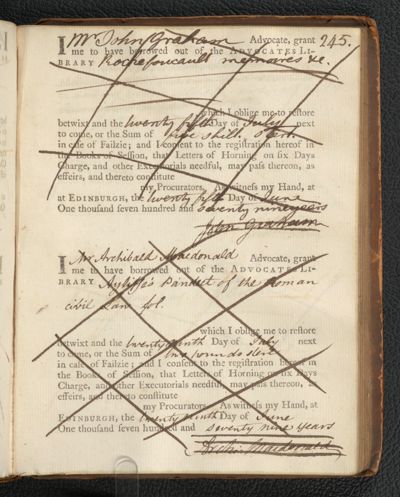 245.
I Mr John Graham Advocate, grant
me to have borrowed out of the ADVOCATES LI-
BRARY Rochefoucault memoires &c.
which I oblige me to restore
betwixt and the twenty fifth Day of July next
to come, or the Sum of five shill. Sterl.
in case of Failzie; and I consent to the registration hereof in
the Books of Session, that Letters of Horning on six Days
Charge, and other Executorials needful, may pass thereon, as
effeirs, and thereto constitute
my Procurators. As witness my Hand, at
at EDINBURGH, the twenty fifth Day of June
One thousand seven hundred and seventy nine years
John Graham
I Mr Archibald Macdonald Advocate, grant
me to have borrowed out of the ADVOCATES LI-
BRARY Ayliffe's Pandect of the Roman
civil Law fol.
which I oblige me to restore
betwixt and the twenty ninth Day of July next
to come, or the Sum of two pounds sterl
in case of Failzie; and I consent to the registration hereof in
the Books of Session, that Letters of Horning on six Days
Charge, and other Executorials needful, may pass thereon, as
effeirs, and thereto constitute
my Procurators. As witness my Hand, at
EDINBURGH, the twenty ninth Day of June
One thousand seven hundred and seventy nine years
Archd. Macdonald